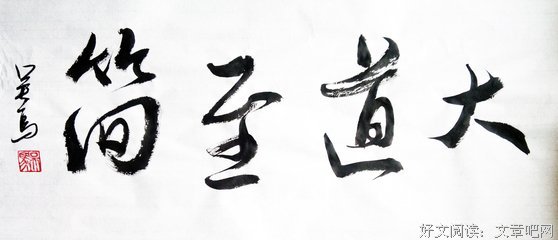 大道至简
好文阅读：文章吧网